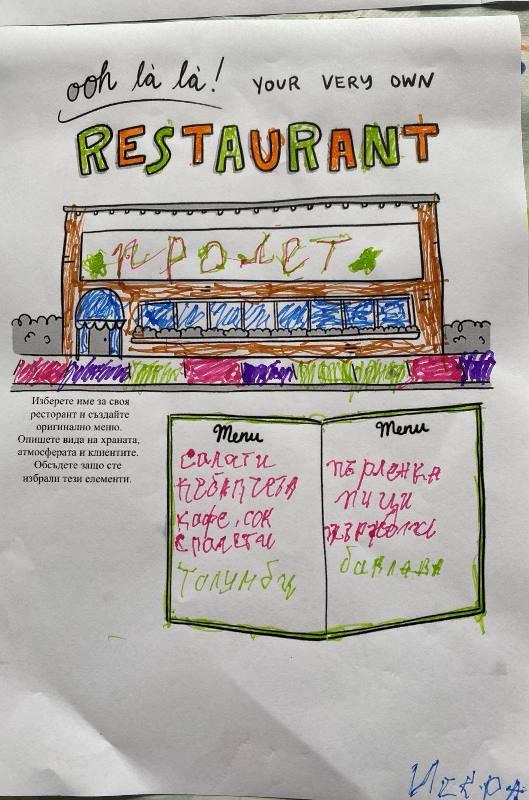 ooh là là! YOUR VERY OWN
RESTAURANT
ПРОЛЕТ
Изберете име за своя
ресторант и създайте
оригинално меню.
Опишете вида на храната,
атмосферата и клиентите.
Обсъдете защо сте
избрали тези елементи.
Menu
салати
кебапчета
кафе, сок
спагети
Толумби
Menu
пърленка
пици
пържоли
баклава
Искра